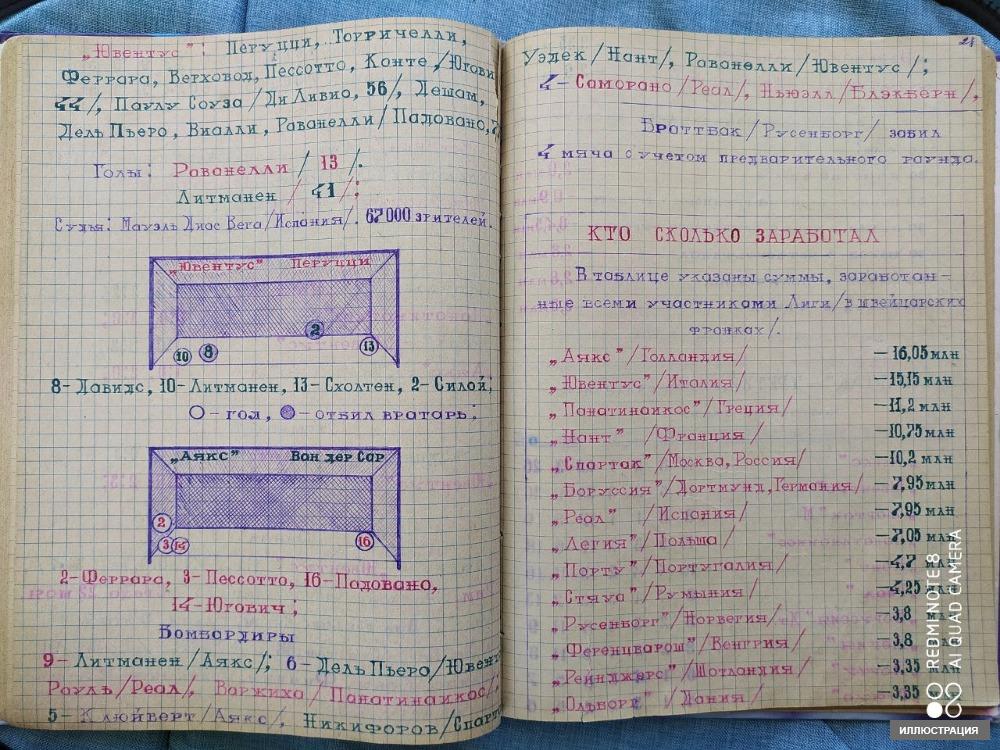 „Ювентус": Перуцци, Торричелли,
Феррара, Верховод, Пессотто, Конте /Югови
44/, Паулу Соуза /Ди Ливио, 56/, Дешам,
Дель Пьеро, Виалли, Раванелли /Падовано, 7
Голы: Раванелли / 13 /.
Литманен / 41 /;
Судья: Мауэль Диас Вега /Испания/. 67000 зрителей.
„Ювентус" Перуцци
2
10 8 13
8- Давидс, 10- Литманен, 13- Схолтен, 2- Силой;
- гол, - отбил вратарь:
„Аякс" Ван дер Сар
2
3 14 16
2-Феррара, 3- Пессотто, 16-Падовано,
14-Югович;
Бомбардиры
9- Литманен /Аякс/; 6 - Дель Пьеро /Ювен
Рауль/Реал/, Варжиха /Панатинаикос/
5- Клюйверт /Аякс/, Никифоров /Спарт
21
Уэдек /Нант/, Раванелли /Ювентус/;
4- Саморано /Реал/, Ньюэлл /Блэкберн/,
Браттбак /Русенборг/ забил
4 мяча с учетом предварительного раунда.
КТО СКОЛЬКО ЗАРАБОТАЛ
В таблице указаны суммы, заработан-
ные всеми участниками Лиги /в швейцарских
франках/.
„Аякс" /Голландия/ - 16,05 млн
„Ювентус" /Италия/ - 15,15 млн
„Панатинаикос" /Греция/ - 11,2 млн
„Нант" /Франция/ - 10,75 млн
„Спартак" /Москва, Россия/ - 10,2 млн
„Боруссия" /Дортмунд, Германия/ - 7,95 млн
„Реал" /Испания/ - 7,95 млн
„Легия" /Польша/ - 7,05 млн
„Порту" /Португалия/ - 4,7 млн
„Стяуа" /Румыния/ - 4,25 млн
„Русенборг" /Норвегия/ - 3,8 млн
„Ференцварош" /Венгрия/ - 3,8 млн
„Рейнджерс" /Шотландия/ - 3,35 млн
„Ольборг" /Дания/ - 3,35
REDMI NOTE 8
AI QUAD CAMERA
ИЛЛЮСТРАЦИЯ